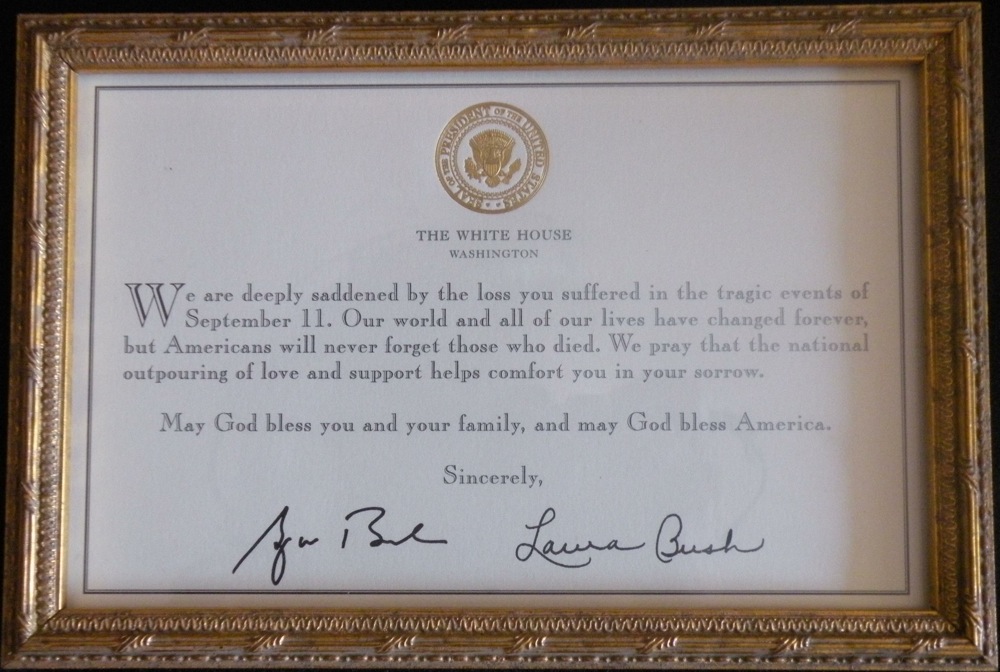 SEAL OF THE PRESIDENT OF THE UNITED STATES
THE WHITE HOUSE
WASHINGTON
We are deeply saddened by the loss you suffered in the tragic events of
September 11. Our world and all of our lives have changed forever,
but Americans will never forget those who died. We pray that the national
outpouring of love and support helps comfort you in your sorrow.
May God bless you and your family, and may God bless America.
Sincerely,
Laura Bush